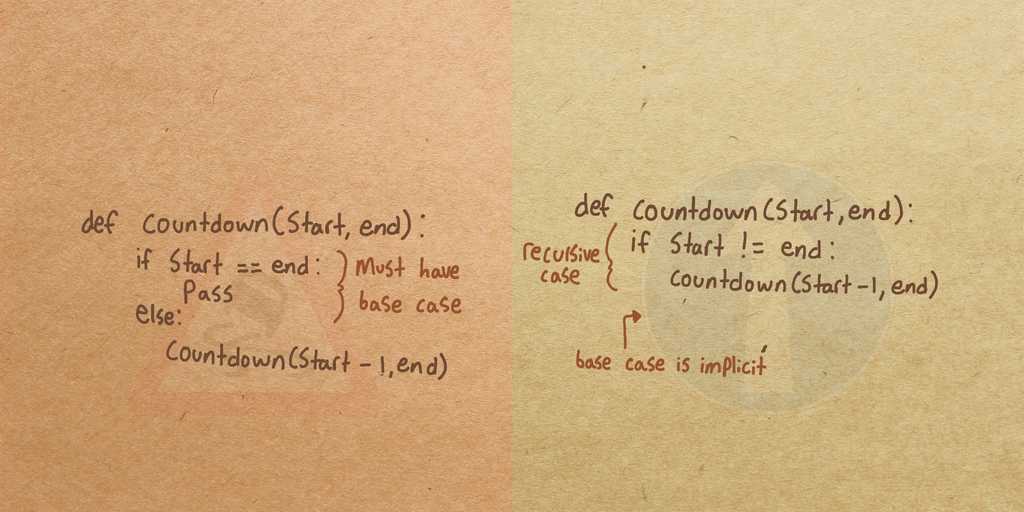 def countdown(start, end):
if start == end:
pass
else:
countdown(start - 1, end)
Must have
base case
def countdown(start, end):
if start != end:
countdown(start -1, end)
recursive
case
base case is implicit